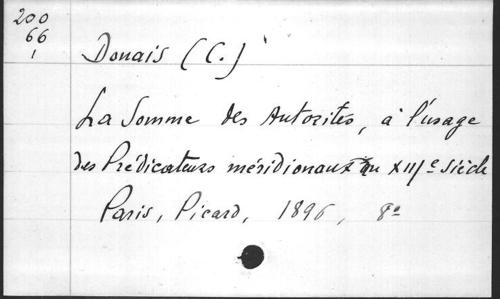 200
66
1
Douais (C.)
La Somme des Autorités, à l'usage
des Prédicateurs méridionaux au XIIIe siècle
Paris, Picard, 1896, 8o